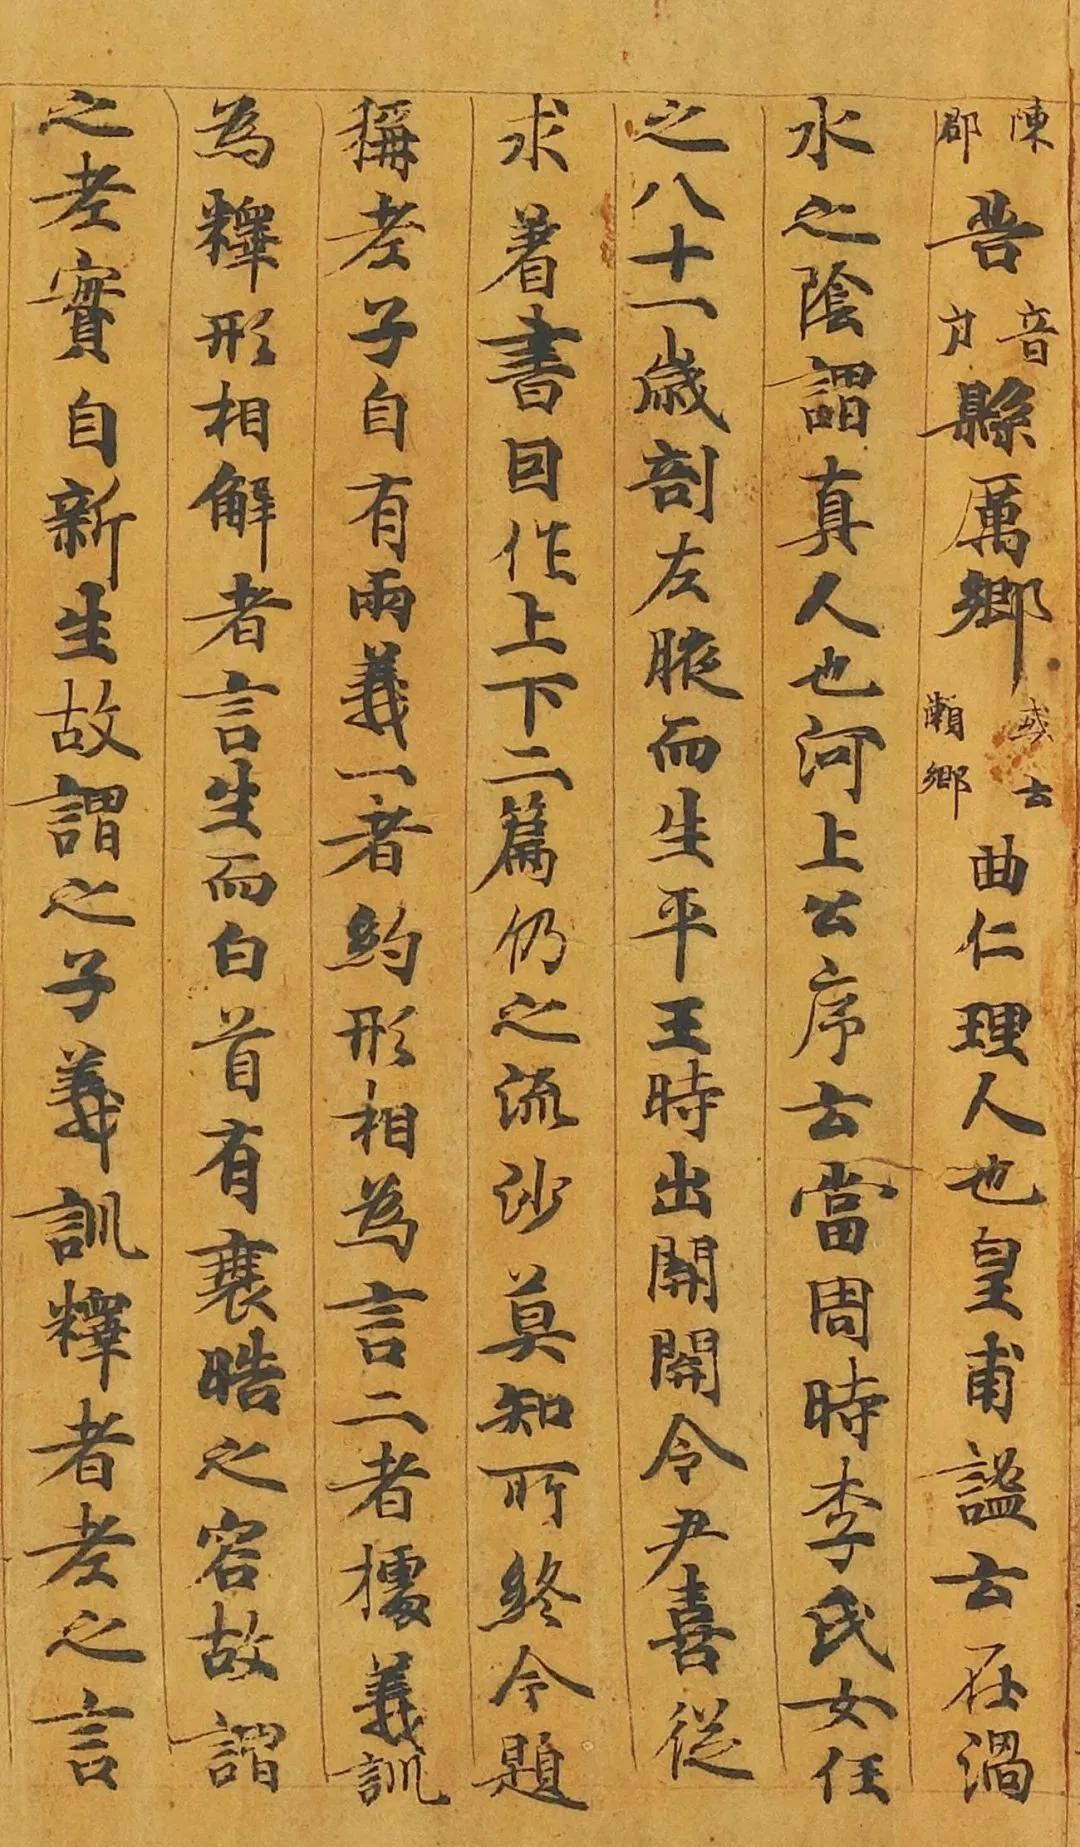 陳郡苦音力縣厲鄉或云瀨鄉曲仁理人也皇甫謐云在渦
水之陰謂真人也河上公序云當周時李氏女任
之八十一歲剖左腋而生平王時出關關令尹喜從
求著書因作上下二篇仍之流沙莫知所終今題
稱老子自有兩義一者約形相為言二者據義訓
為釋形相解者言生而白首有衰晧之容故謂
之老實自新生故謂之子義訓釋者老之言